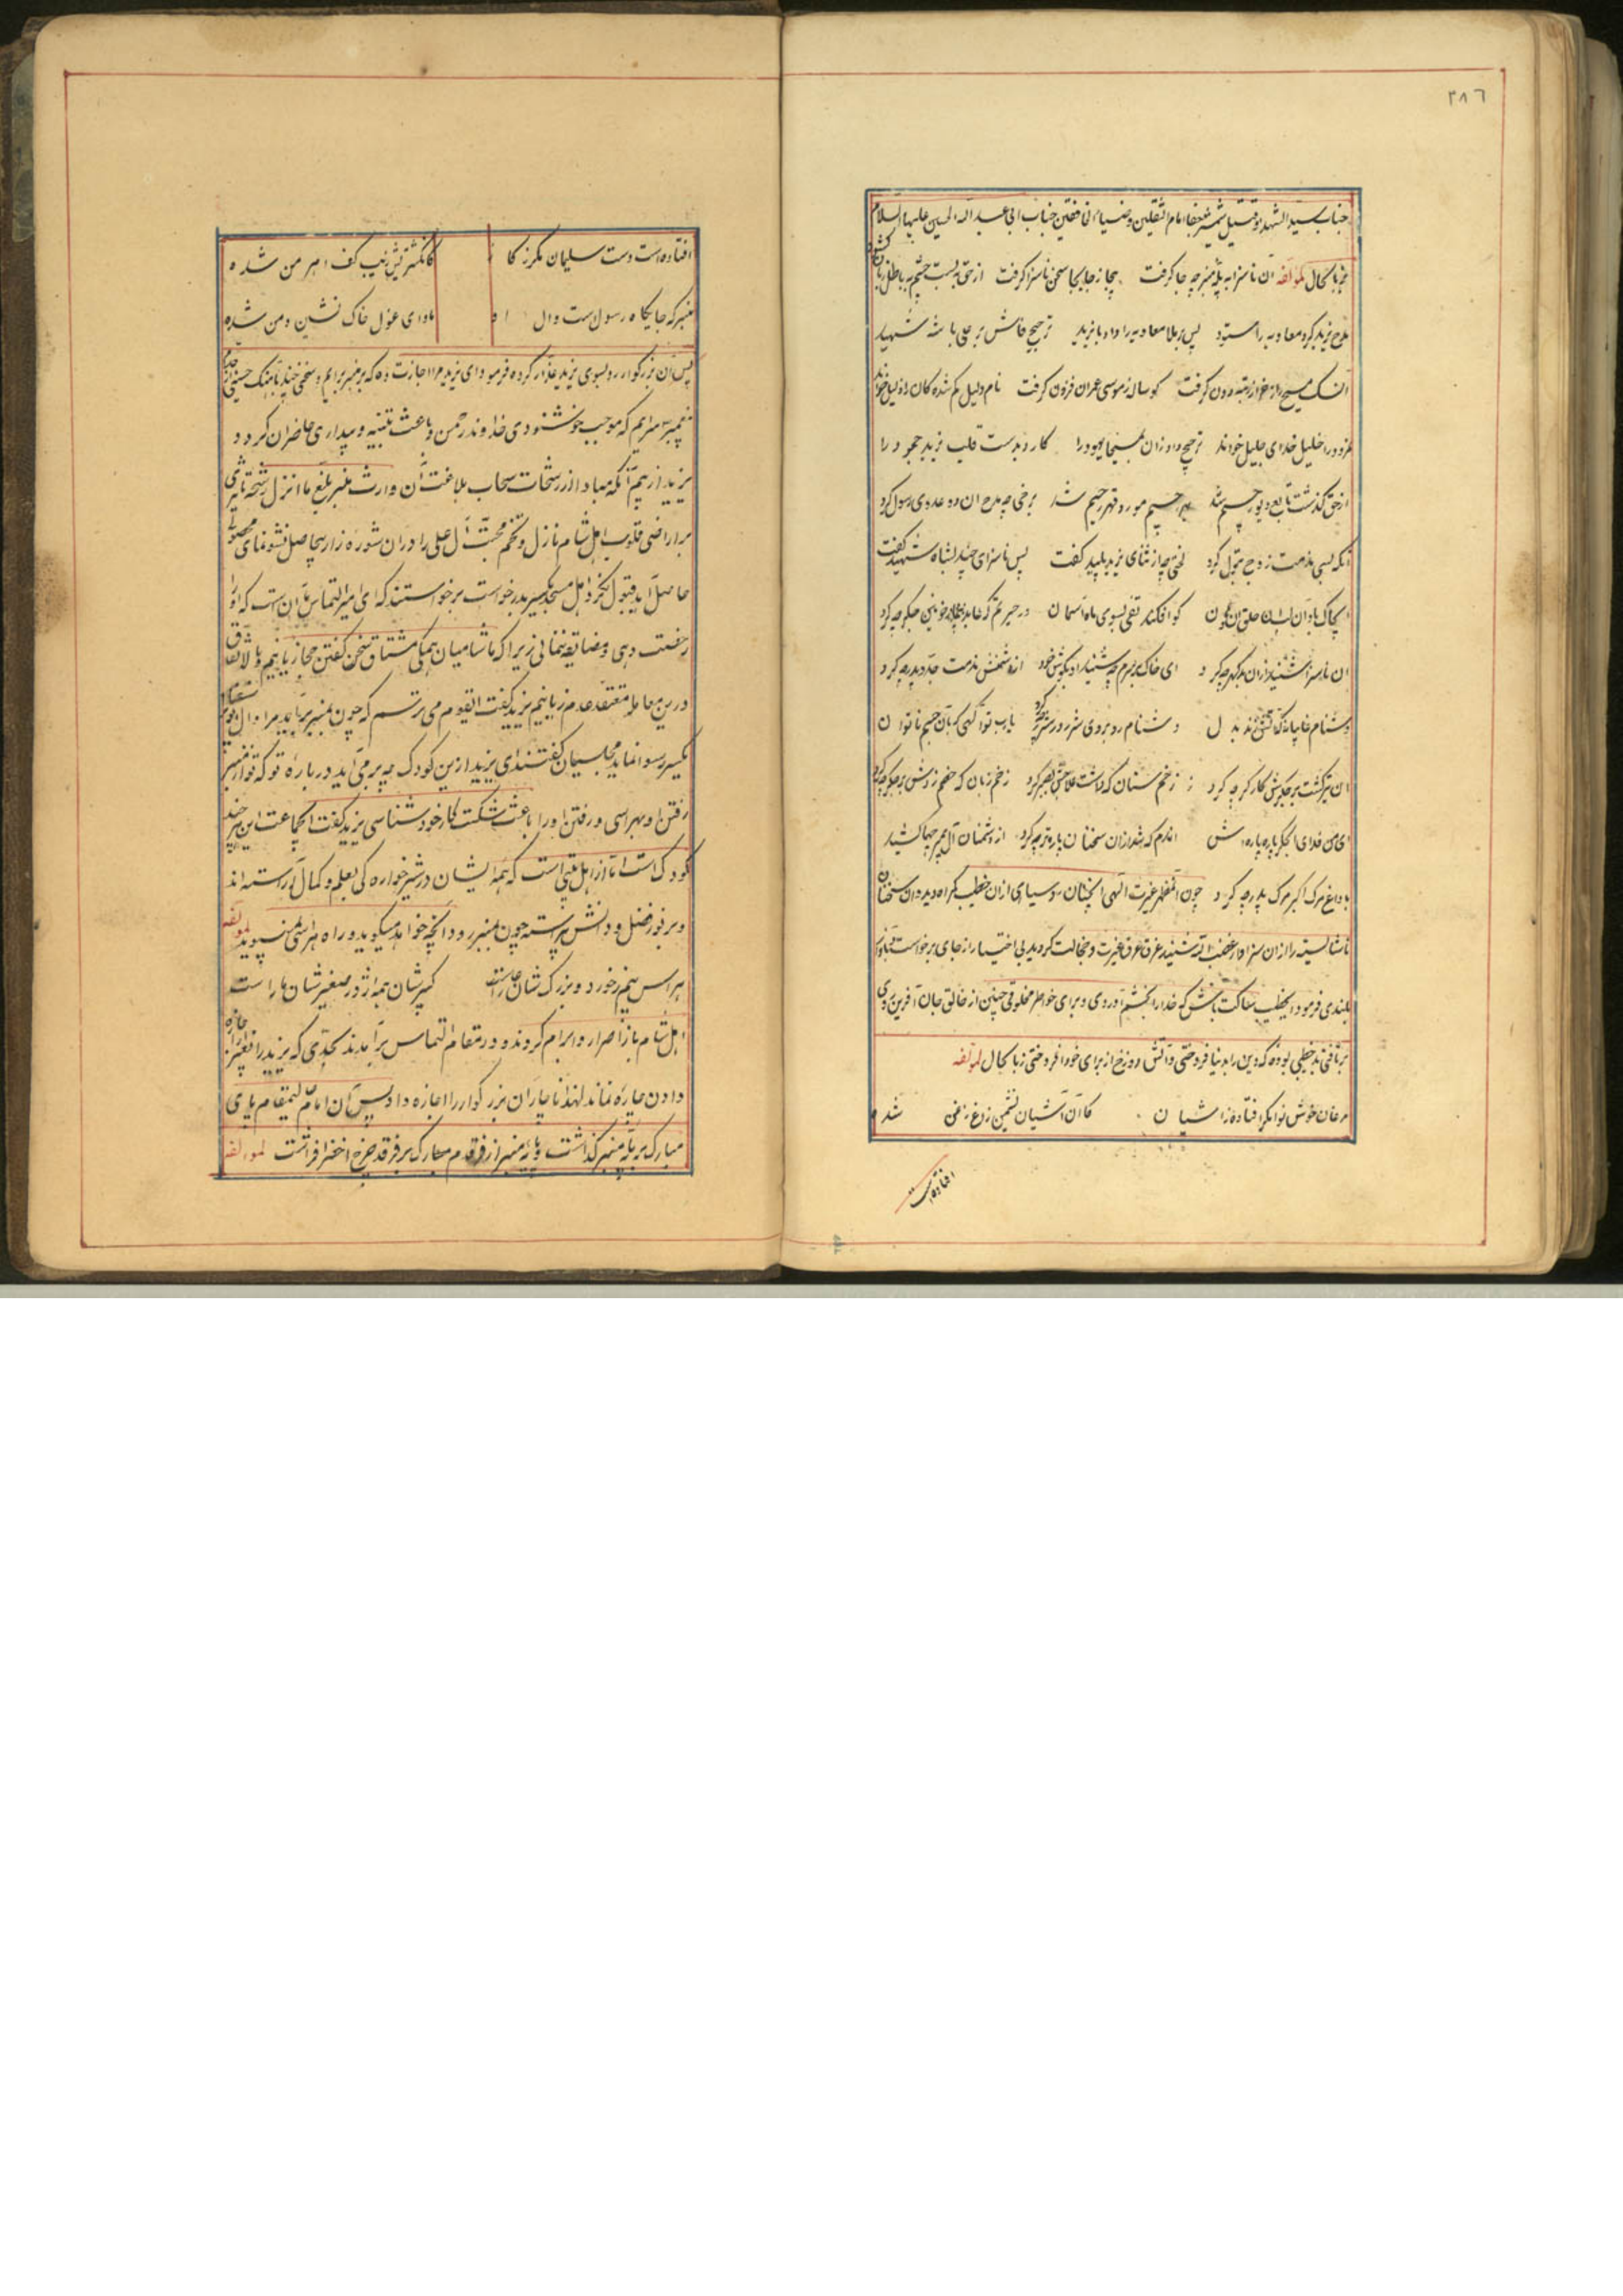 ٣٨٦
جناب سید الشهدا و قتیل شمشیر جفا امام الثقلین و ضیاء الخافقین جناب ابی عبدالله الحسین علیهما السلام
بزبان حال لمؤلفه آن ناسزا به پله منبر چه جا گرفت بیجا ز جا سخن ناسزا گرفت از حق ببست چشم به باطل زبان گشود
مدح یزید کرد و معاویه را ستود پس بر ملا معاویه را داد با یزید ترجیح فاحش بر علی با شه شهید
آنک مسیح را ز خر از رتبه دون گرفت گوساله ز موسی عمران فزون گرفت نام دلیل گم شده کان را دلیل خواند
نمرود را خلیل خدای جلیل خواند ترجیح داد زان به مسیحا یهود را کار
از حق گذشت تابع دیو رجیم شد بهر جسیم مورد قهر رحیم شد برخی چه مدح آن دو عدوی رسول کرد
آنگه بسی مذمت زوج بتول کرد لختی چه از ثنای یزید پلید گفت پس ناسزای چند بشاه شهید گفت
کو افکند تفی بسوی ماه آسمان در حیرتم که عابد
آن ناسزا شنید از آن بد گهر چه کرد ای خاک بر سرم چه شنید او بگوش خود از دشمنش مذمت جد و پدر چه کرد
دشنام غایبانه که آتش زند بدل دشنام روبروی یا رب تو آگهی که بآن جسم ناتوان
آن تیر گشت بر جگرش کارگر چه کرد زخم سنان که داشت زخم زبان که زخم زدش بر جگر چه کرد
ای من فدای آن جگر پاره پاره اش آندم که شد از آن سخنان پاره تر چه کرد از دشمنان آل پیمبر جها کشید
با داغ مرگ اکبر مرگ پدر چه کرد چون آن مظهر غیرت الهی آنچنان رو سیاهی از آن خطیب گمراه دید و آن سخنان
ناشایسته را از آن سزاوار غضب اله شنید غرق عرق غیرت و خجالت گردید بی اختیار از جای برخواست بآواز
بلندی فرمود ایخطیب ساکت باش که خدا را بخشم آوردی و برای خواطر مخلوقی چنین از خالق جان آفرین روی
برتافتی بد خطیبی بوده که دین را بدنیا فروختی و آتش دوزخ از برای خود افروختی زبان حال لمؤلفه
مرغان خوش نوا مگر افتاده ز آشیان کان آشیان نشیمن زاغ و زغن شد
افتاده است
افتاده است دست سلیمان مگر ز کار کانگشتریش زیب کف اهرمن شده
منبر که جایگاه رسولست و آل او ماوای غول خاک نشین و من شده
پس آن بزرگوار رو بسوی یزید غدار کرده فرمود ای یزید مرا اجازت ده که بر منبر برآیم و سخنی چند بآهنگ حسینی
پیمبر سرایم که موجب خوشنودی خداوند رحمن و باعث تنبیه و بیداری حاضران گردد
یزید از بیم آنکه مباد از رشحات سحاب بلاغت آن وارث منبر بلغ ما انزل رشحه تاثیری
بر اراضی قلوب اهل شام نازل و تخم محبت آل علی را در آن شوره زار بیحاصل نشو نمای
حاصل آید قبول نکرد اهل مسجد یکسر بدرخواست برخواستند که ای امیر التماس ما آن است که او را
رخصت دهی و مضایقه ننمائی زیرا که ما شامیان همگی مشتاق سخن گفتن حجازیانیم و بالاتفاق
درین معامله متفق عدم زیانیم یزید گفت ایقوم می ترسم که چون بمنبر برآید مرا و آل
یکسر رسوا نماید مجلسیان گفتند ای یزید ازین کودک چه برمی آید درباره تو که تو از منبر
رفتن او بهراسی و رفتن او را باعث شکست کار خود شناسی یزید گفت ایجماعت این هرچند
کودک است اما از اهل بیتی است که همه ایشان در شیرخواره گی بعلم و کمال آراسته اند
و بر فور فضل و دانش پیراسته چون بمنبر رود آنچه خواهد میگوید و راه هراسی نمی پوید لمؤلفه
هراس بیم ز خورد و بزرگ شان کبیرشان همه اژدر صغیرشان مار است
اهل شام باز اصرار و ابرام کردند و در مقام التماس برآمدند بحدی که یزید را بغیر اجازه
دادن چاره نماند لهذا ناچار آن بزرگوار را اجازه داد پس آن امام عالیمقام پای
مبارک بر پله منبر گذاشت و پایه منبر از فر قدم مبارک بر فرقد چرخ اخضر افراشت لمؤلفه